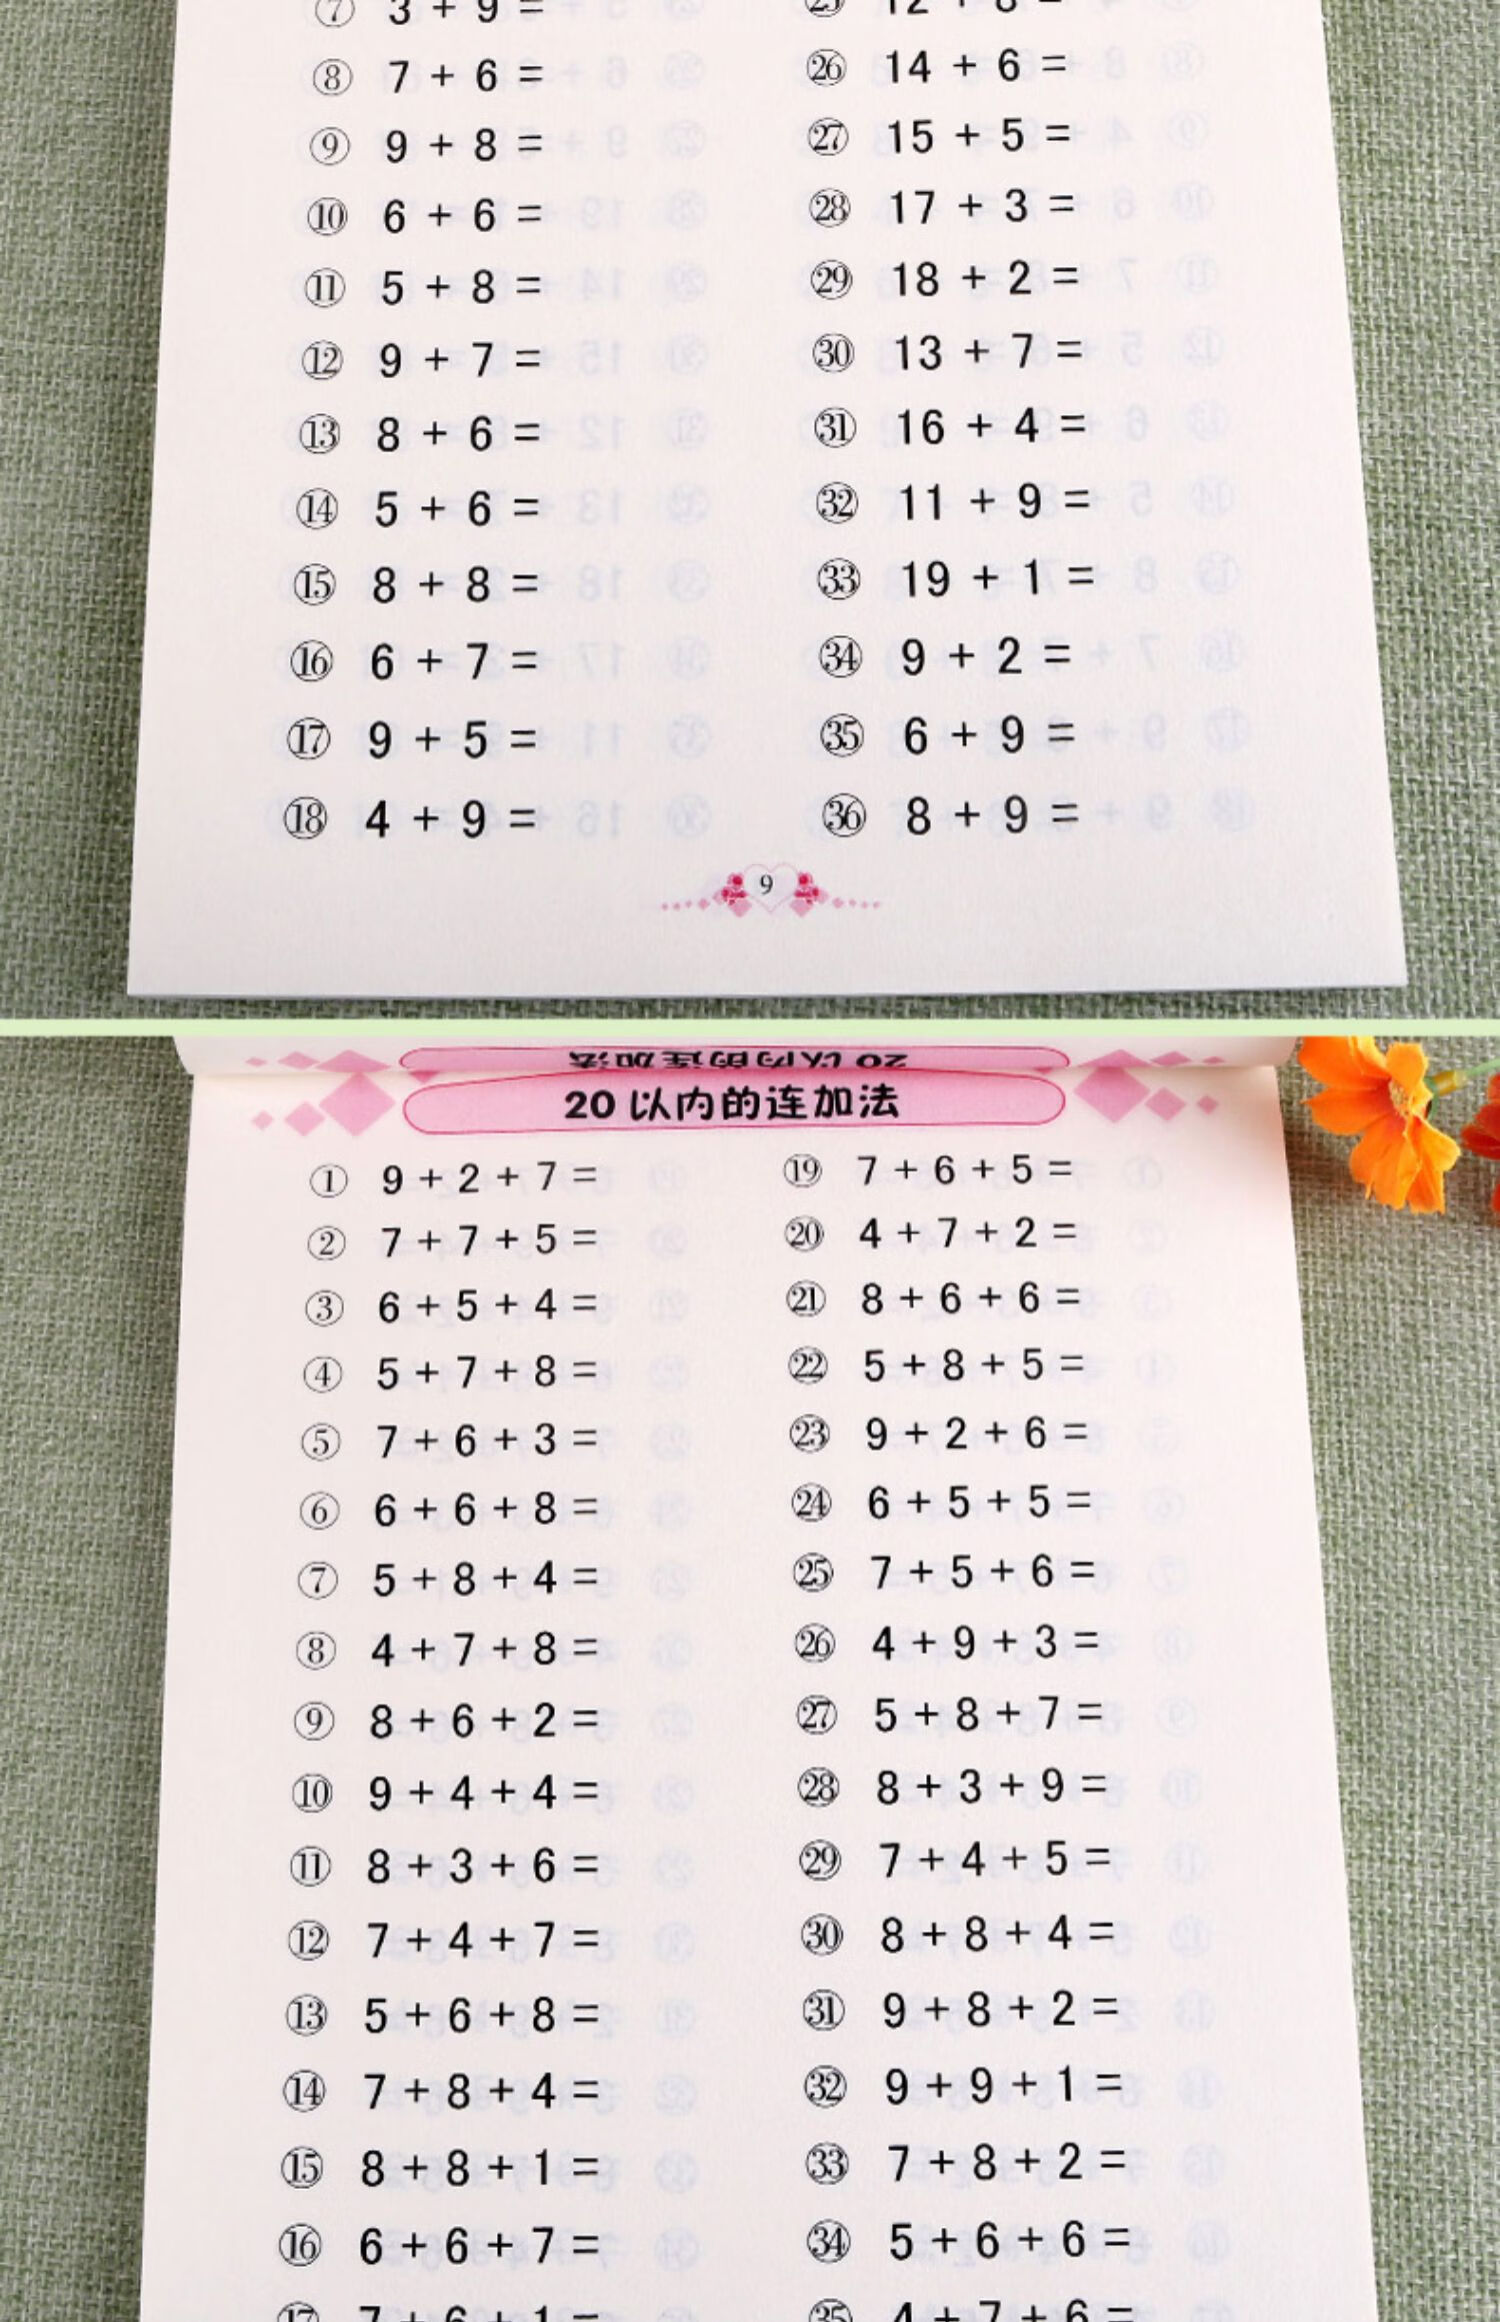 ⑦ 3 + 9 =
⑧ 7 + 6 =
⑨ 9 + 8 =
⑩ 6 + 6 =
⑪ 5 + 8 =
⑫ 9 + 7 =
⑬ 8 + 6 =
⑭ 5 + 6 =
⑮ 8 + 8 =
⑯ 6 + 7 =
⑰ 9 + 5 =
⑱ 4 + 9 =
㉕ 12 + 8 =
㉖ 14 + 6 =
㉗ 15 + 5 =
㉘ 17 + 3 =
㉙ 18 + 2 =
㉚ 13 + 7 =
㉛ 16 + 4 =
㉜ 11 + 9 =
㉝ 19 + 1 =
㉞ 9 + 2 =
㉟ 6 + 9 =
㊱ 8 + 9 =
9
20 以内的连加法
① 9 + 2 + 7 =
② 7 + 7 + 5 =
③ 6 + 5 + 4 =
④ 5 + 7 + 8 =
⑤ 7 + 6 + 3 =
⑥ 6 + 6 + 8 =
⑦ 5 + 8 + 4 =
⑧ 4 + 7 + 8 =
⑨ 8 + 6 + 2 =
⑩ 9 + 4 + 4 =
⑪ 8 + 3 + 6 =
⑫ 7 + 4 + 7 =
⑬ 5 + 6 + 8 =
⑭ 7 + 8 + 4 =
⑮ 8 + 8 + 1 =
⑯ 6 + 6 + 7 =
⑰ 7 + 6 + 1 =
⑲ 7 + 6 + 5 =
⑳ 4 + 7 + 2 =
㉑ 8 + 6 + 6 =
㉒ 5 + 8 + 5 =
㉓ 9 + 2 + 6 =
㉔ 6 + 5 + 5 =
㉕ 7 + 5 + 6 =
㉖ 4 + 9 + 3 =
㉗ 5 + 8 + 7 =
㉘ 8 + 3 + 9 =
㉙ 7 + 4 + 5 =
㉚ 8 + 8 + 4 =
㉛ 9 + 8 + 2 =
㉜ 9 + 9 + 1 =
㉝ 7 + 8 + 2 =
㉞ 5 + 6 + 6 =
㉟ 4 + 7 + 6 =